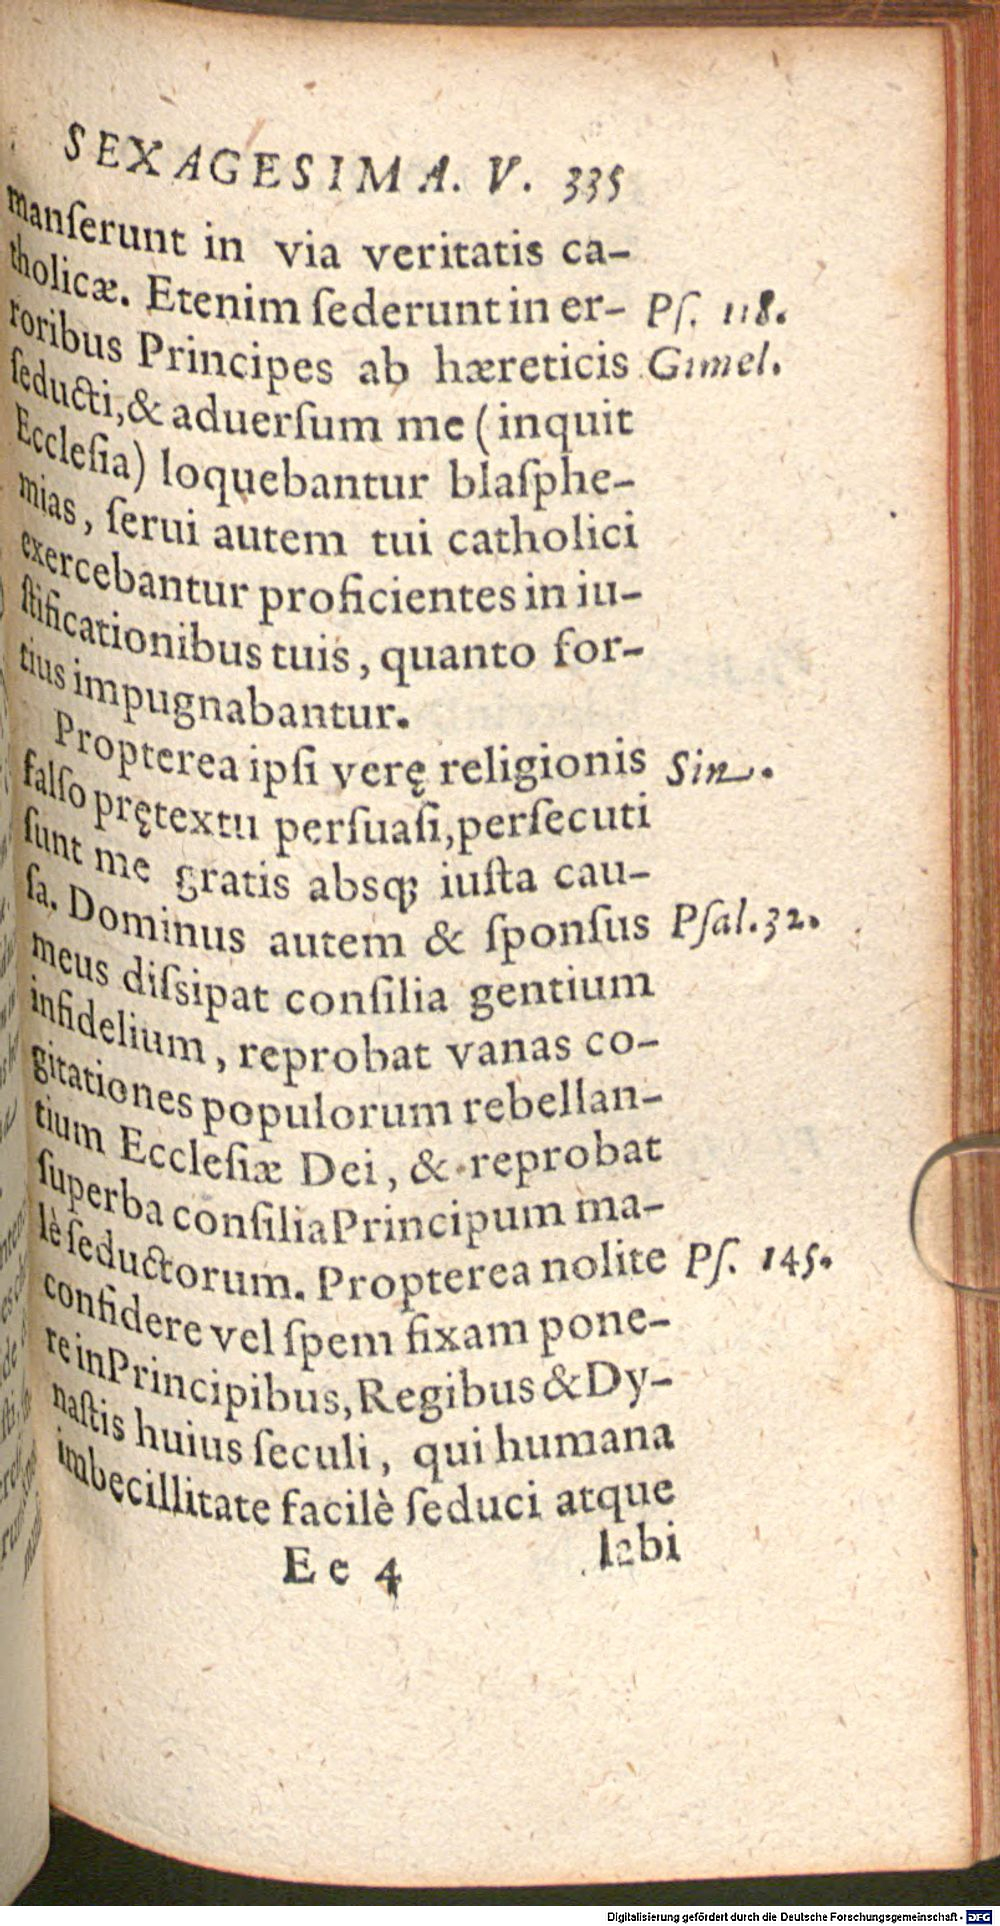 SEXAGESIMA. V. 335
manſerunt in via veritatis ca-
tholicæ. Etenim ſederunt in er- Pſ. 118.
roribus Principes ab hæreticis Gimel.
ſeducti, & aduerſum me (inquit
Eccleſia) loquebantur blaſphe-
mias, ſerui autem tui catholici
exercebantur proficientes in iu-
ſtificationibus tuis, quanto for-
tius impugnabantur.
Propterea ipſi verę religionis Sin.
falſo prętextu perſuaſi, perſecuti
ſunt me gratis absq; iuſta cau-
ſa. Dominus autem & ſponſus Pſal. 32.
meus diſsipat conſilia gentium
infidelium, reprobat vanas co-
gitationes populorum rebellan-
tium Eccleſiæ Dei, & reprobat
ſuperba conſilia Principum ma-
lè ſeductorum. Propterea nolite Pſ. 145.
confidere vel ſpem fixam pone-
re in Principibus, Regibus & Dy-
naſtis huius ſeculi, qui humana
imbęcillitate facilè ſeduci atque
Ee 4 labi
Digitalisierung gefördert durch die Deutsche Forschungsgemeinschaft - DFG